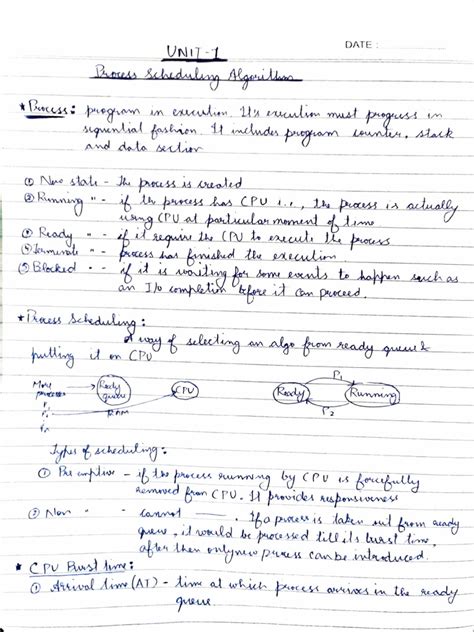 DATE :
UNIT-1
Process Scheduling Algorithm
* Process : program in execution. It's execution must progress in
sequential fashion. It includes program counter, stack
and data section
① New state - the process is created
② Running " - if the process has CPU i.e., the process is actually
using CPU at particular moment of time
③ Ready " - if it require the CPU to execute the process
④ Terminate " - process has finished the execution.
⑤ Blocked " - if it is waiting for some events to happen such as
an I/o completion before it can proceed.
* Process Scheduling :
A way of selecting an algo from ready queue &
putting it on CPU
More Ready queue CPU
processes
P1
RAM
Ready P1 Running
P2
Types of scheduling :
① Preemptive - if the process running by CPU is forcefully
removed from CPU. It provides responsiveness
② Non " - cannot ———. If a process is taken out from ready
queue, it would be processed till its burst time,
after then only new process can be introduced.
* CPU Burst time :
① Arrival time (AT) - time at which process arrives in the ready
queue.